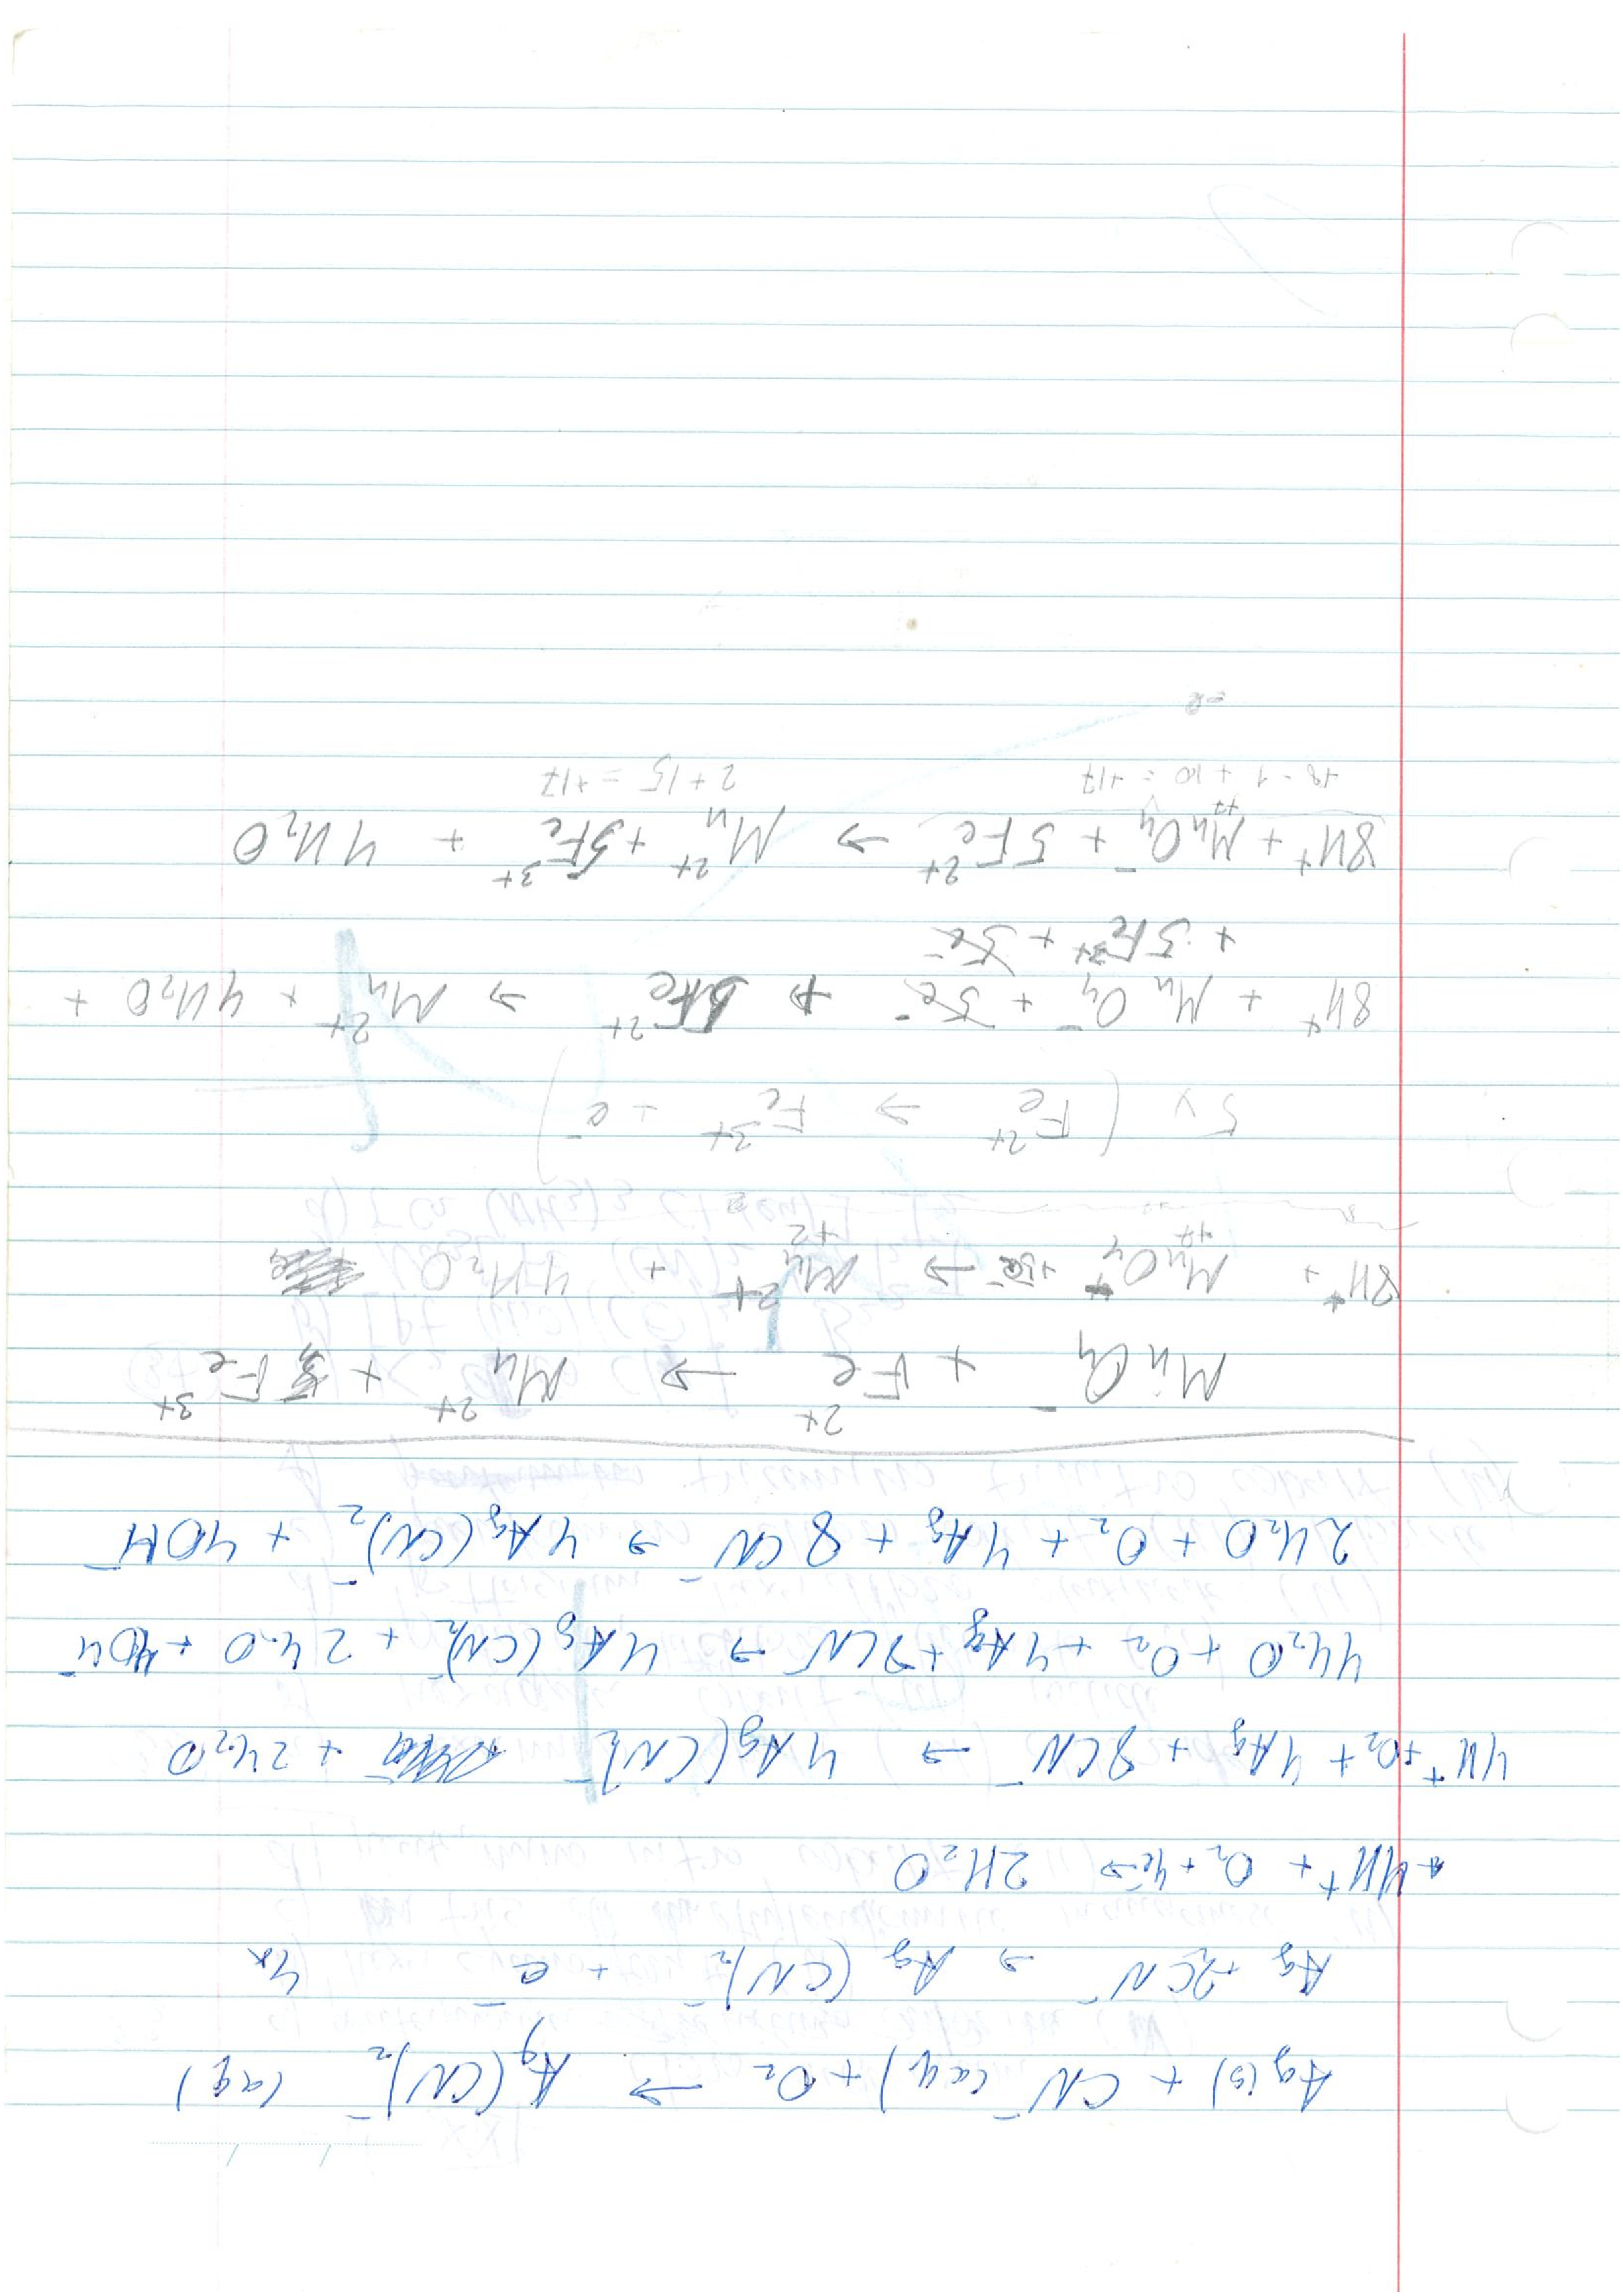 Ag(s) + CN⁻(aq) + O₂ → Ag(CN)₂⁻ (aq)
Ag + 2CN⁻ → Ag(CN)₂⁻ + e⁻ 4x
4H⁺ + O₂ + 4e⁻ → 2H₂O
4H⁺ + O₂ + 4Ag + 8CN⁻ → 4Ag(CN)₂⁻ + 2H₂O
4H₂O + O₂ + 4Ag + 8CN⁻ → 4Ag(CN)₂⁻ + 2H₂O + 4OH⁻
2H₂O + O₂ + 4Ag + 8CN⁻ → 4Ag(CN)₂⁻ + 4OH⁻
MnO₄⁻ + Fe²⁺ → Mn²⁺ + Fe³⁺
8H⁺ + MnO₄⁻ + 5e⁻ → Mn²⁺ + 4H₂O
+7 +2
5x (Fe²⁺ → Fe³⁺ + e⁻)
8H⁺ + MnO₄⁻ + 5e⁻ + 5Fe²⁺ → Mn²⁺ + 4H₂O +
+ 5Fe³⁺ + 5e⁻
8H⁺ + MnO₄⁻ + 5Fe²⁺ → Mn²⁺ + 5Fe³⁺ + 4H₂O
+7
+8 - 1 + 10 = +17 2 + 15 = +17
-8